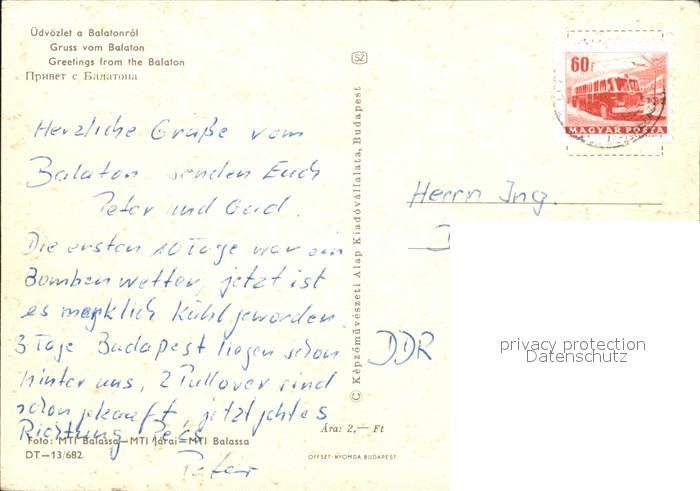 Üdvözlet a Balatonról
Gruss vom Balaton
Greetings from the Balaton
Привет с Балатона
Herzliche Grüße vom
Balaton senden Euch
Peter und Gerd.
Die ersten 10 Tage war ein
Bombenwetter, jetzt ist
es merklich kühl geworden.
3 Tage Budapest liegen schon
hinter uns, 2 Pullover sind
schon gekauft, jetzt gehts
Richtung Pécs
Peter
Foto: MTI Balassa—MTI Járai—MTI Balassa
DT—13/682.
Ára: 2,— Ft
OFFSET-NYOMDA BUDAPEST
© Képzőművészeti Alap Kiadóvállalata, Budapest
SZ
60f
MAGYAR POSTA
Herrn Ing.
DDR
privacy protection
Datenschutz